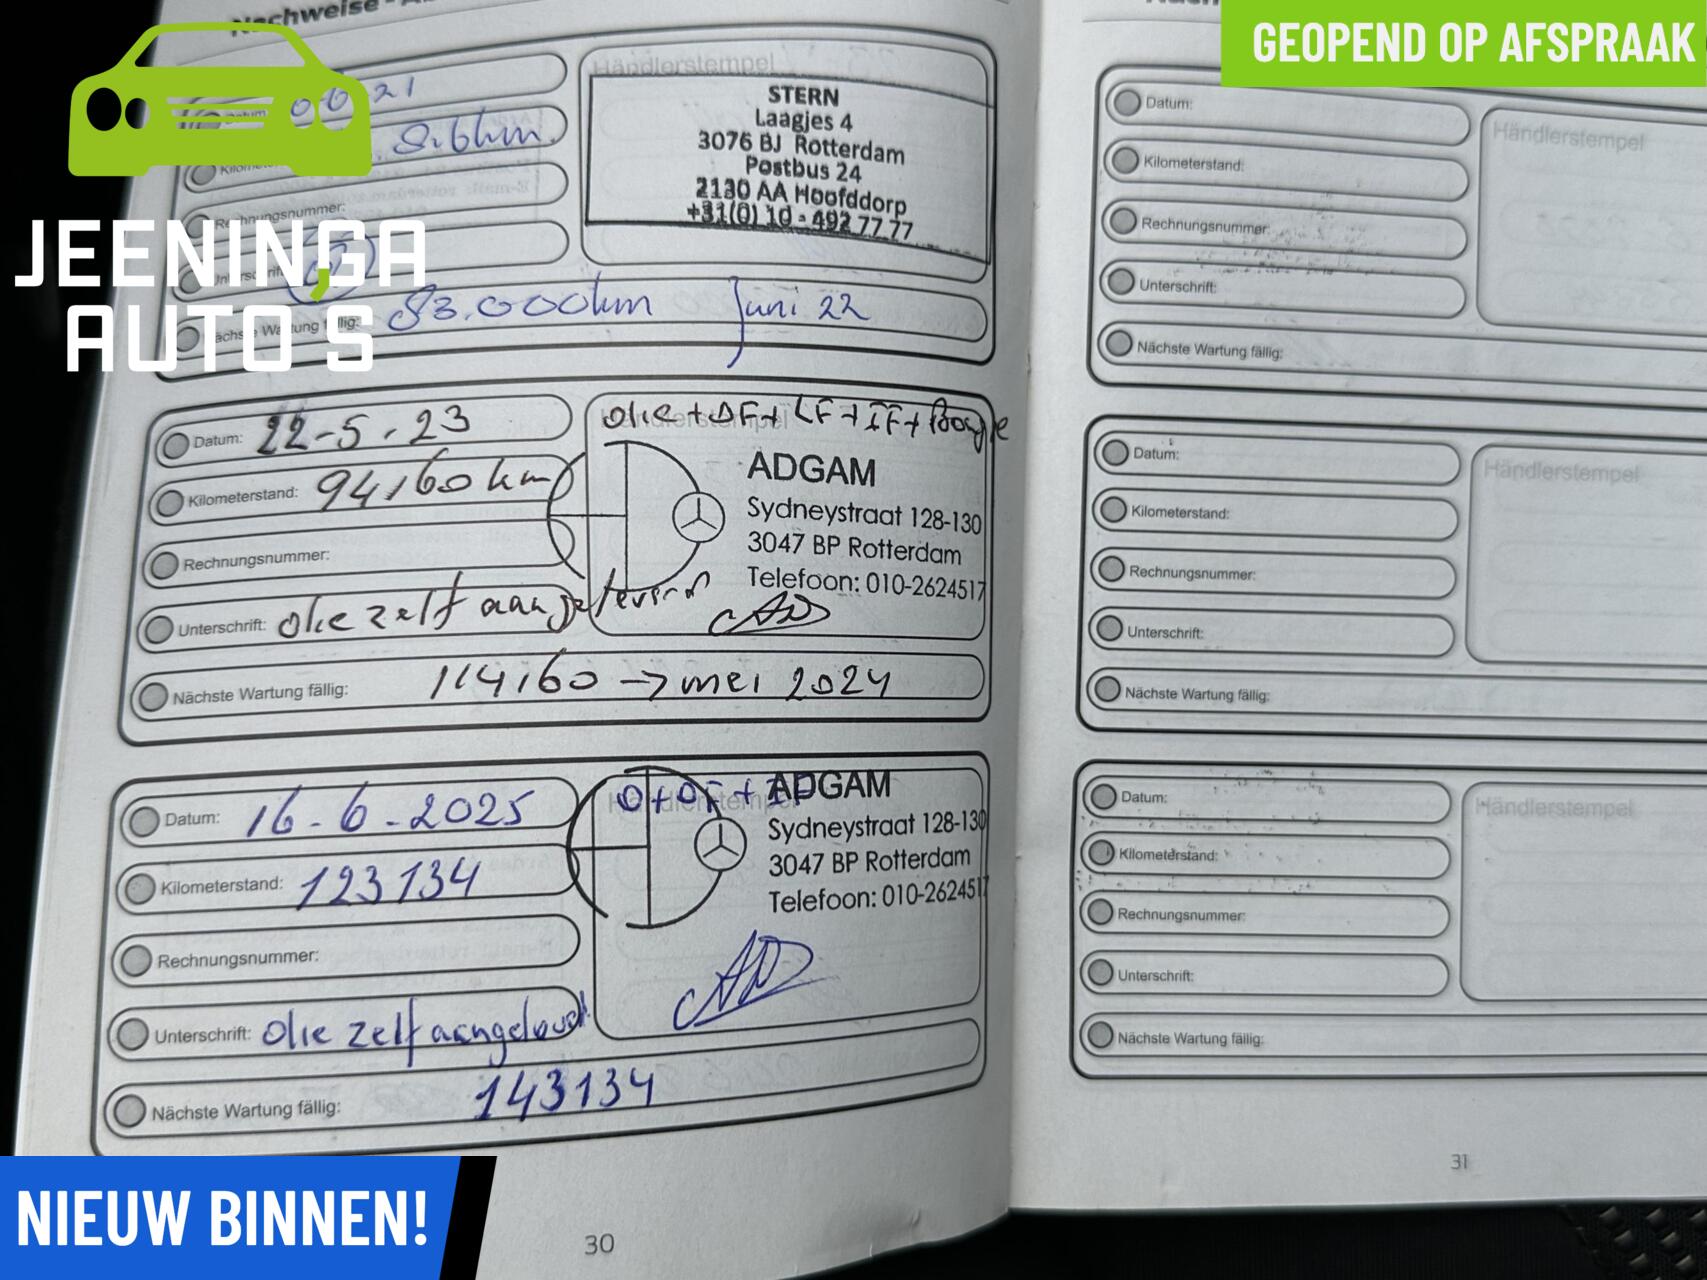 GEOPEND OP AFSPRAAK
JEENINGA
AUTO'S
Händlerstempel
STERN
Laagjes 4
3076 BJ Rotterdam
Postbus 24
2130 AA Hoofddorp
+31(0) 10 - 492 77 77
Rechnungsnummer:
83.000km Juni 22
Datum: 22-5-23
Kilometerstand: 94160 km
Rechnungsnummer:
Unterschrift: olie zelf aangeleverd
Nächste Wartung fällig: 114160 → mei 2024
Händlerstempel
olie + DF + LF + IF + Bougie
ADGAM
Sydneystraat 128-130
3047 BP Rotterdam
Telefoon: 010-2624517
Datum: 16-6-2025
Kilometerstand: 123134
Rechnungsnummer:
Unterschrift: Olie zelf aangeleverd
Nächste Wartung fällig: 143134
Händlerstempel
O+OF+IF
ADGAM
Sydneystraat 128-130
3047 BP Rotterdam
Telefoon: 010-2624517
30
Datum:
Kilometerstand:
Rechnungsnummer:
Unterschrift:
Nächste Wartung fällig:
Händlerstempel
Datum:
Kilometerstand:
Rechnungsnummer:
Unterschrift:
Nächste Wartung fällig:
Händlerstempel
Datum:
Kilometerstand:
Rechnungsnummer:
Unterschrift:
Nächste Wartung fällig:
Händlerstempel
31
NIEUW BINNEN!